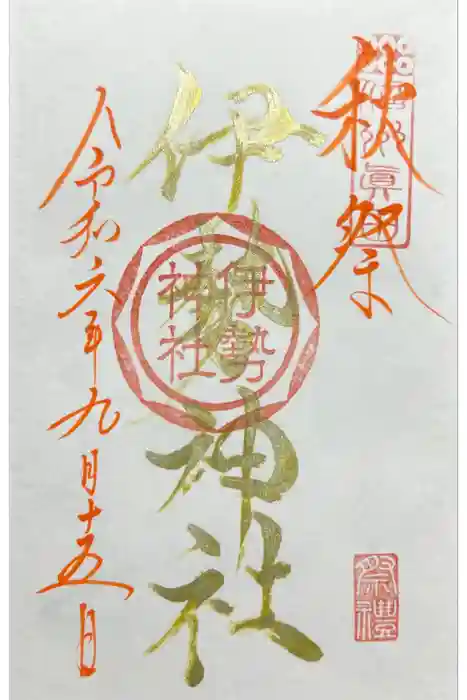 秋祭
伊勢神社
伊勢
神社
祭禮
令和六年九月十五日